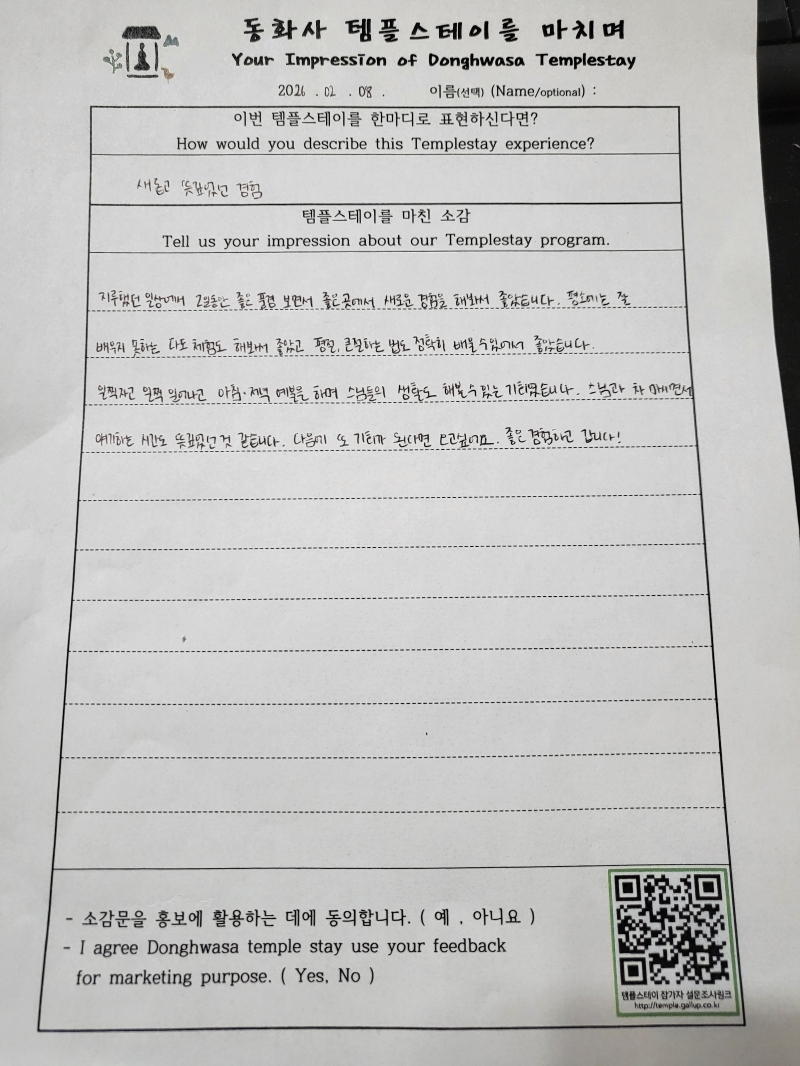 동화사 템플스테이를 마치며
Your Impression of Donghwasa Templestay
2026 . 02 . 08 . 이름(선택) (Name/optional) :
이번 템플스테이를 한마디로 표현하신다면?
How would you describe this Templestay experience?
새롭고 뜻깊었던 경험
템플스테이를 마친 소감
Tell us your impression about our Templestay program.
지루했던 일상에서 2일동안 좋은 풍경 보면서 좋은곳에서 새로운 경험을 해봐서 좋았습니다. 평소에는 잘
배우지 못하는 다도 체험도 해봐서 좋았고 평절, 큰절하는 법도 정확히 배울 수있어서 좋았습니다.
일찍자고 일찍 일어나고 아침·저녁 예불을 하며 스님들의 생활도 해볼 수 있는 기회였습니다. 스님과 차 마시면서
얘기하는 시간도 뜻깊었던 것 같습니다. 다음에 또 기회가 된다면 오고싶어요. 좋은 경험하고 갑니다!
- 소감문을 홍보에 활용하는 데에 동의합니다. ( 예 , 아니요 )
- I agree Donghwasa temple stay use your feedback
for marketing purpose. ( Yes, No )
템플스테이 참가자 설문조사링크
http://temple.gallup.co.kr